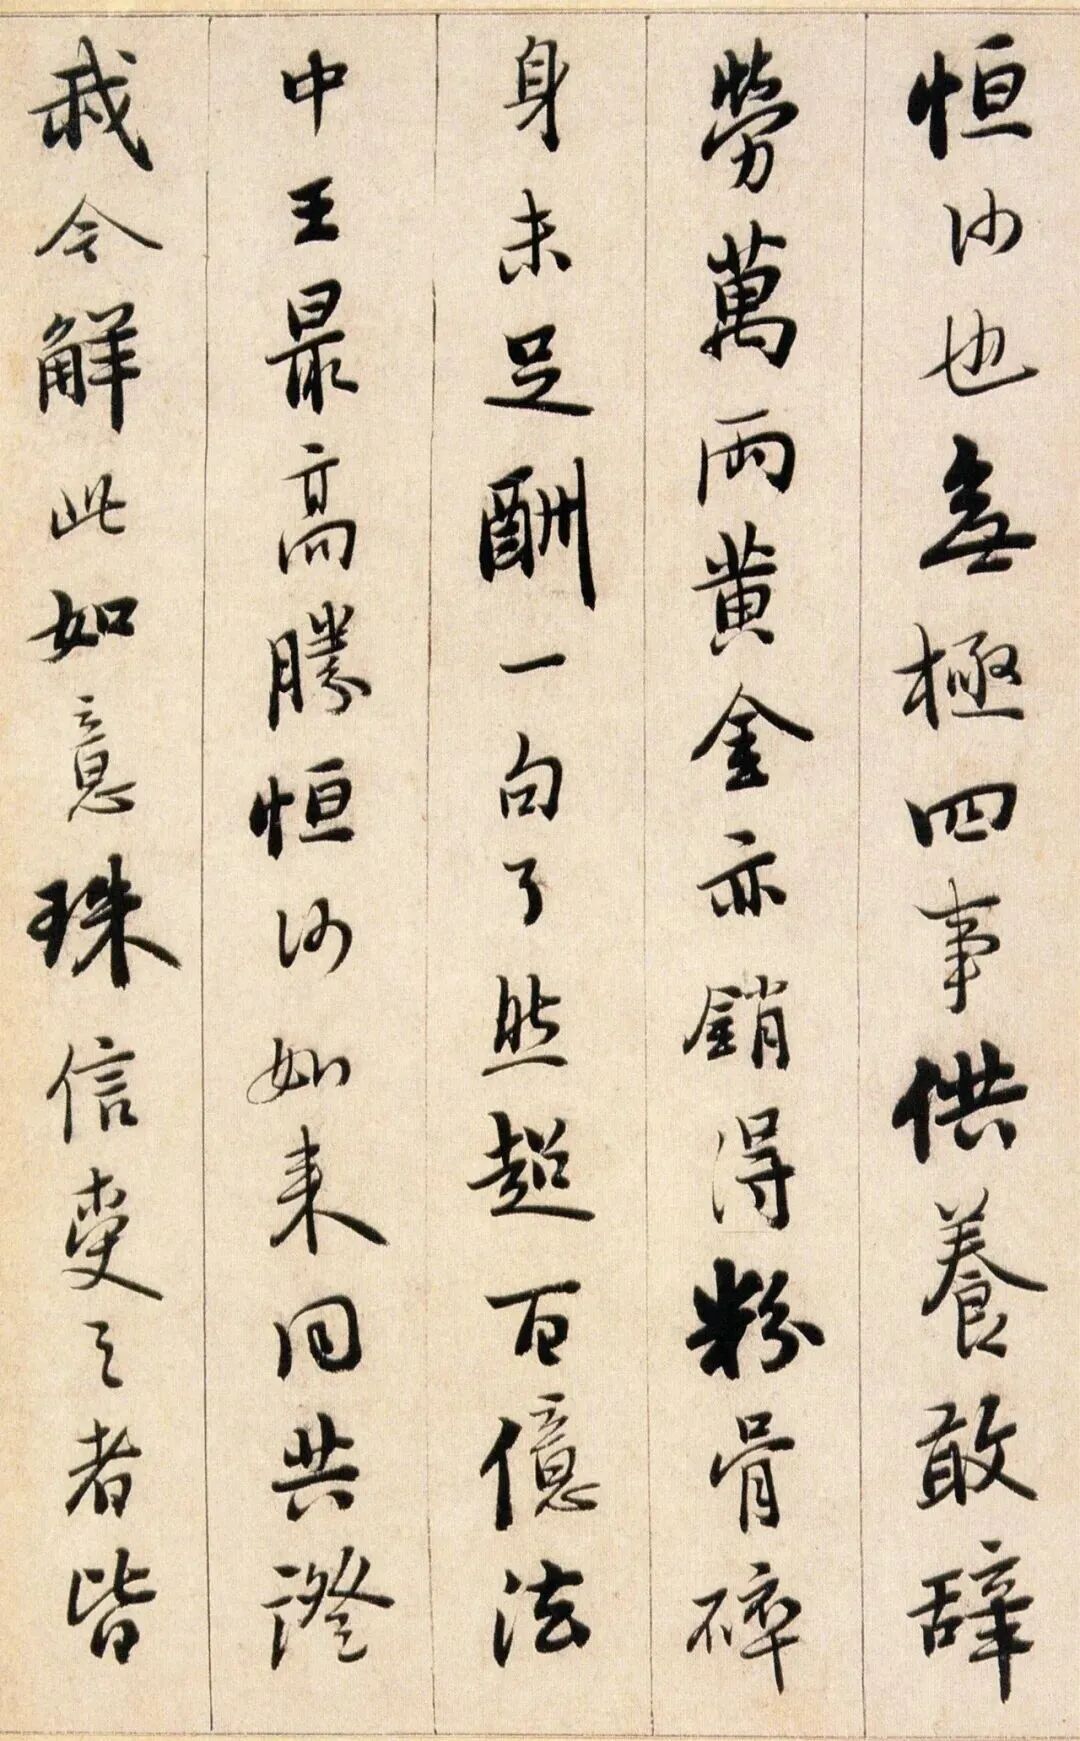 恒沙也無極四事供養敢辞
勞萬兩黃金亦銷得粉骨碎
身未足酬一句了然超百億法
中王最高勝恒沙如来同共證
我今解此如意珠信受之者皆